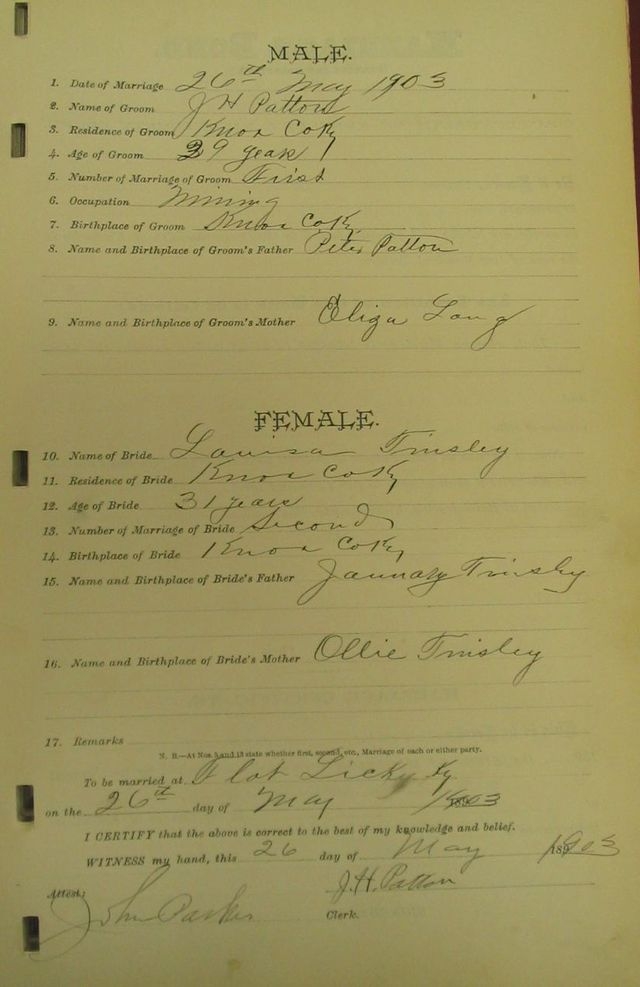 MALE.
1. Date of Marriage 26th May 1903
2. Name of Groom J H Patton
3. Residence of Groom Knox Co Ky
4. Age of Groom 29 years
5. Number of Marriage of Groom First
6. Occupation Mining
7. Birthplace of Groom Knox Co Ky
8. Name and Birthplace of Groom's Father Peter Patton
9. Name and Birthplace of Groom's Mother Eliza Long
FEMALE.
10. Name of Bride Louisa Tinsley
11. Residence of Bride Knox Co Ky
12. Age of Bride 31 years
13. Number of Marriage of Bride Second
14. Birthplace of Bride Knox Co Ky
15. Name and Birthplace of Bride's Father January Tinsley
16. Name and Birthplace of Bride's Mother Ollie Tinsley
17. Remarks
N. B.—At Nos. 5 and 13 state whether first, second, etc., Marriage of each or either party.
To be married at Flat Lick Ky.
on the 26th day of May 1903
I CERTIFY that the above is correct to the best of my knowledge and belief.
WITNESS my hand, this 26 day of May 1903
J.H. Patton
Attest:
John Parker Clerk.